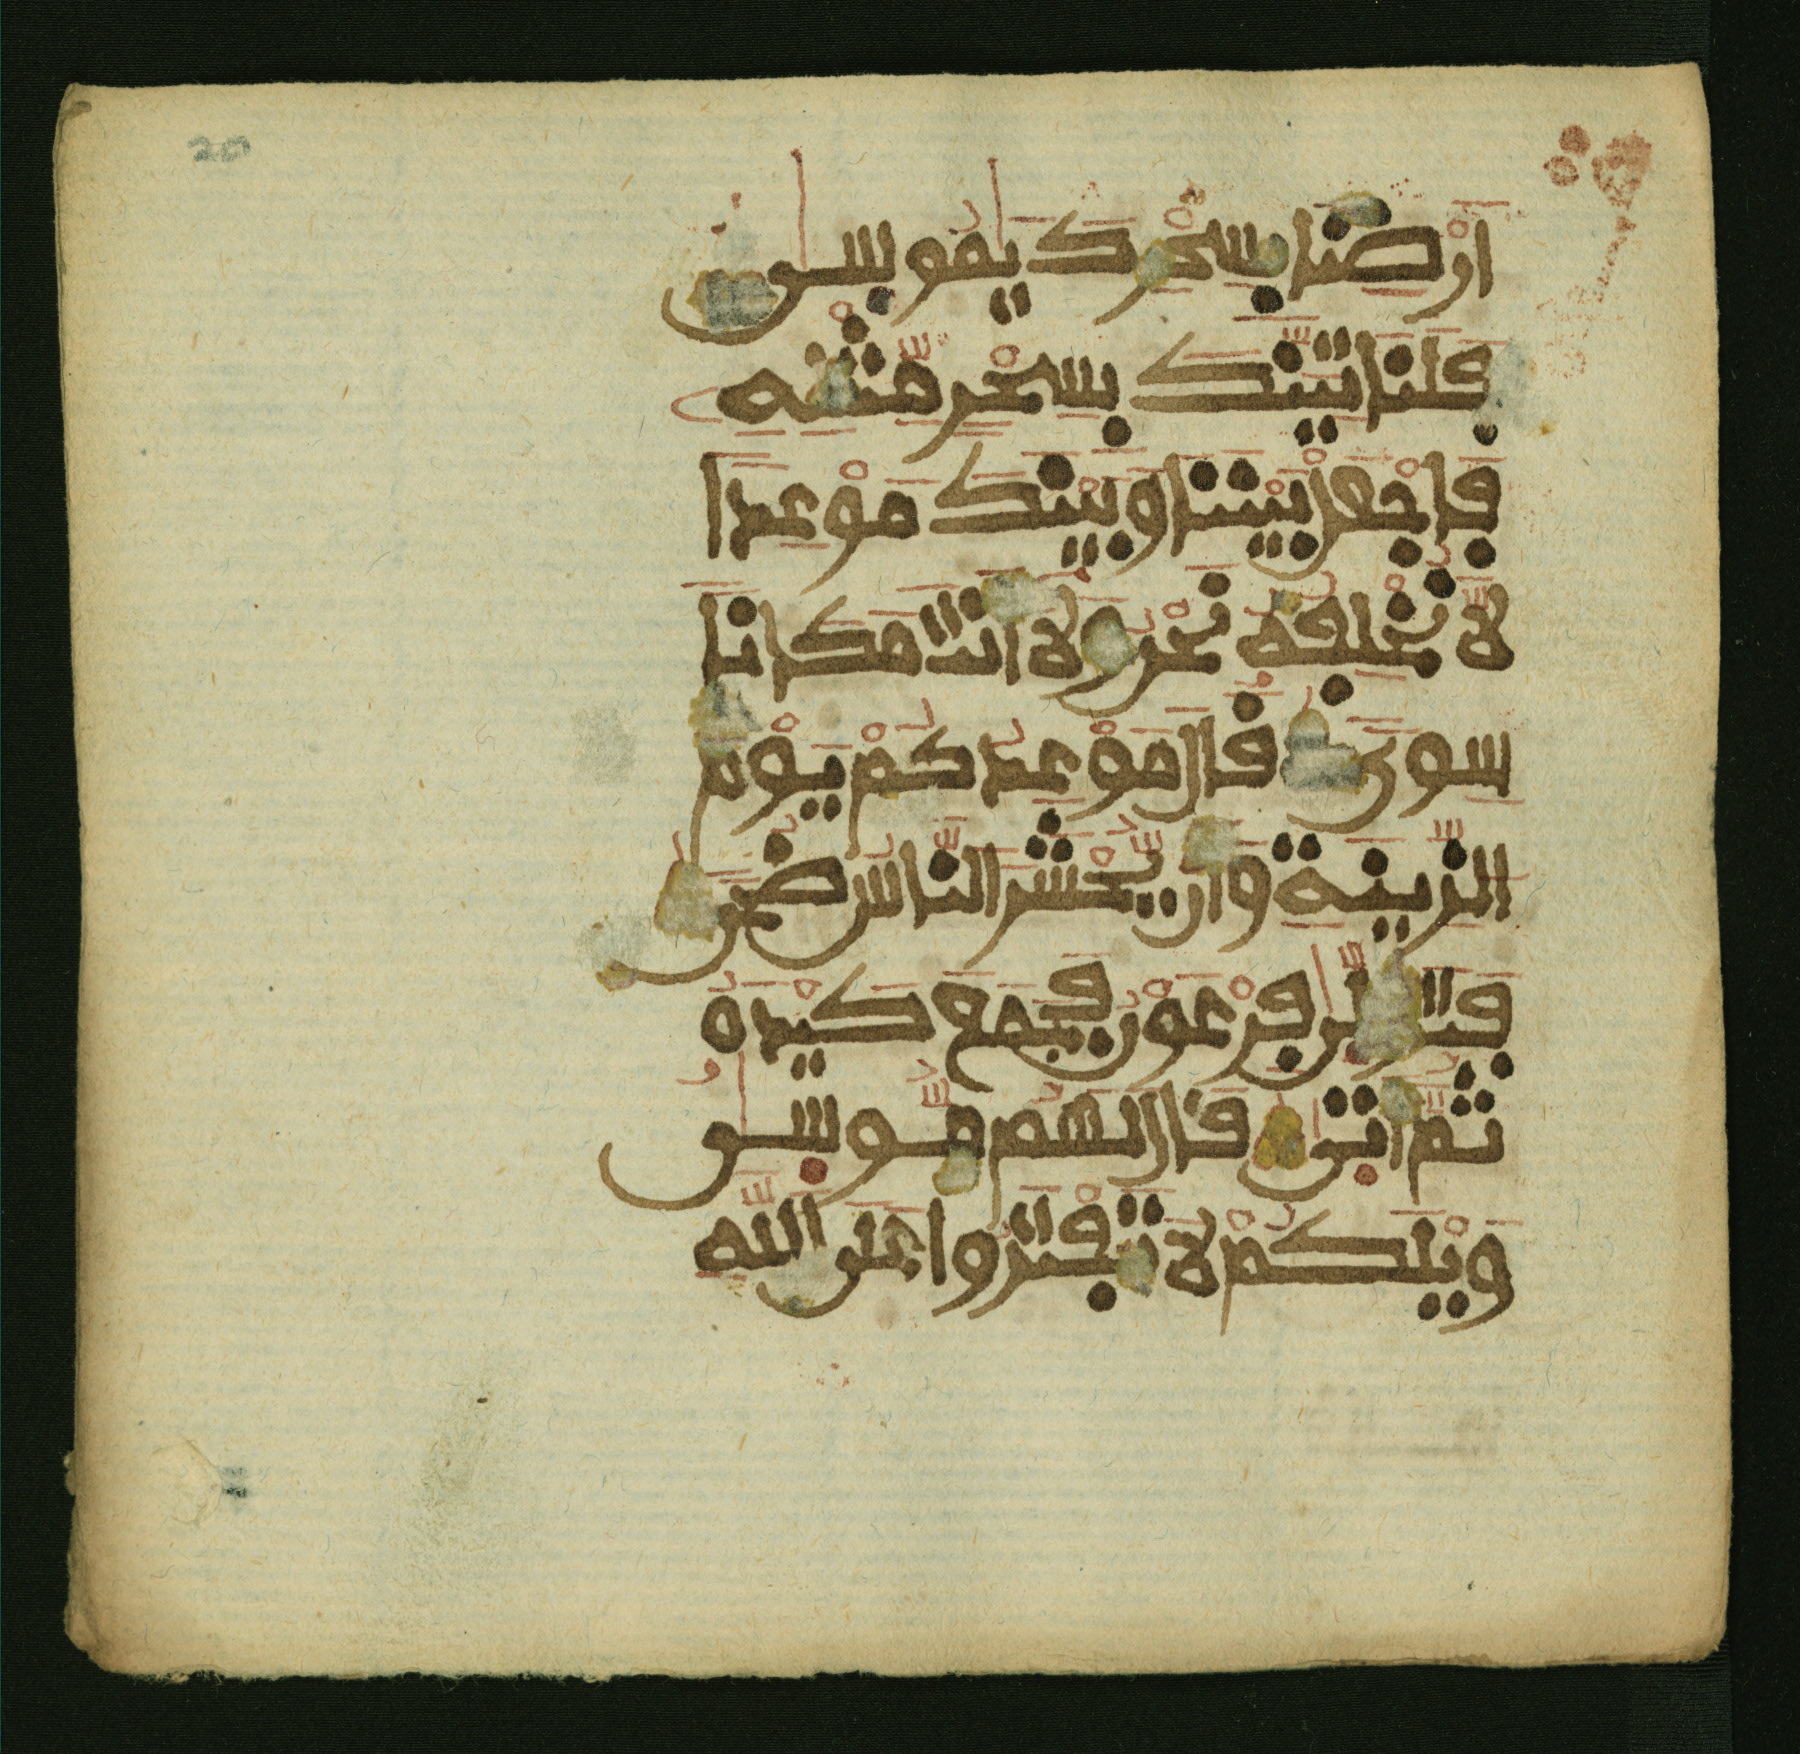 20
ارْضنا بسحْرك يٰموسىٰ
فلناتيَنّك بسحْر مّثْله
فاجْعلْ بيْننا وبيْنك موْعدا
لا نخْلفه نحْن ولا انت مكانا
سوى قال موْعدكمْ يوْم
الزّينة وان يّحْشر النّاس ضحى
فتولّىٰ فرْعوْن فجمع كيْده
ثمّ اتىٰ قال لهم مّوسىٰ
ويْلكمْ لا تفْتروا على اللّه